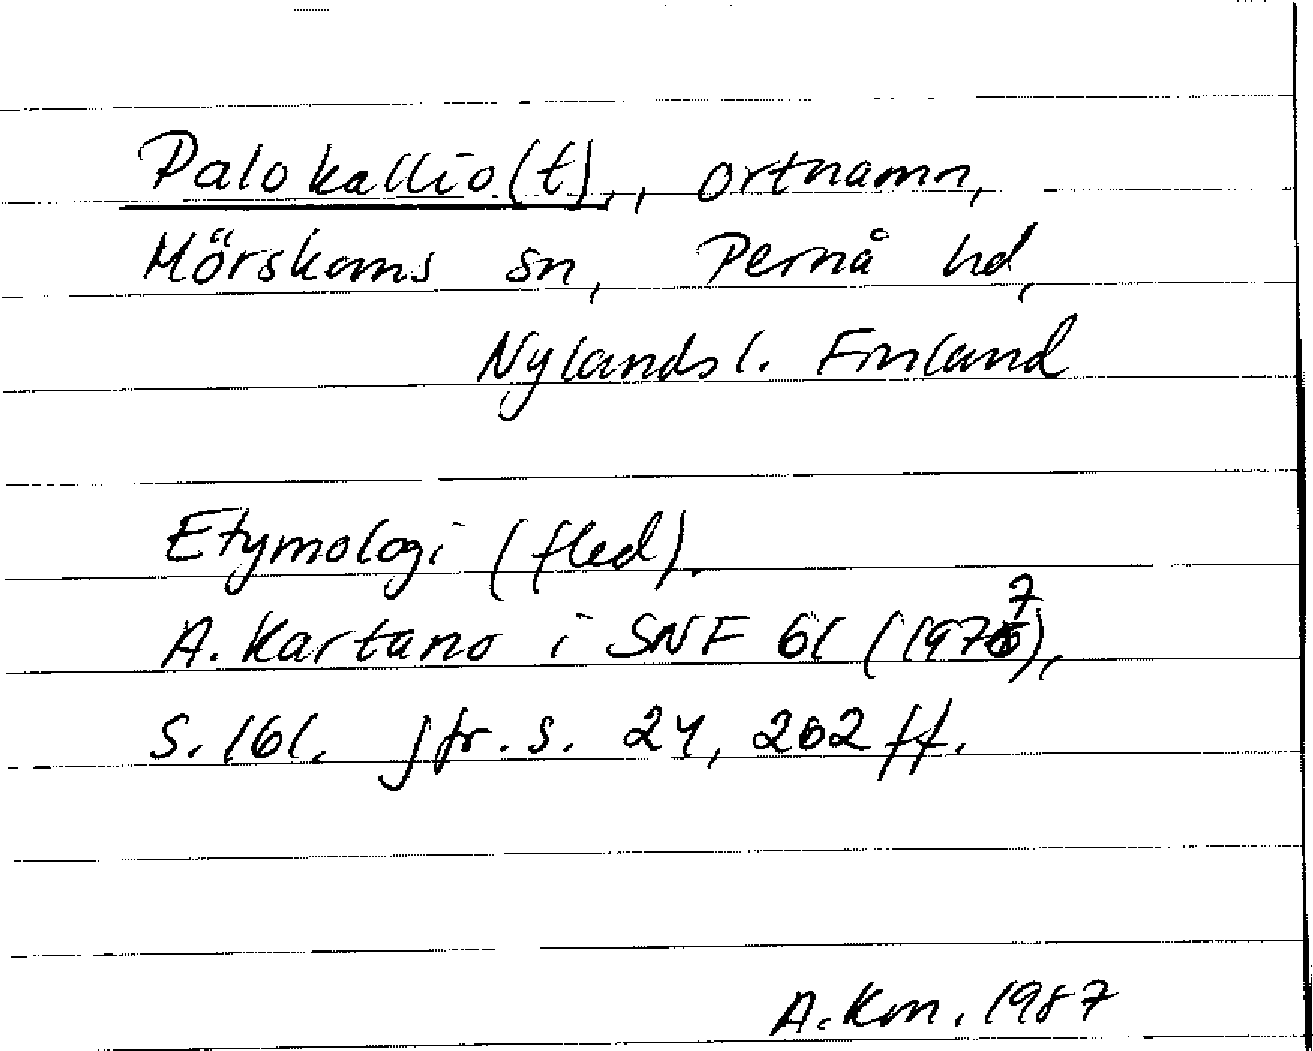 Palokallio(t), ortnamn,
Mörskoms sn, Pernå hd,
Nylands l. Finland
Etymologi (fled).
A. Kartano i SNF 61 (1977),
s. 161. Jfr. s. 24, 202 ff.
A. Km. 1987